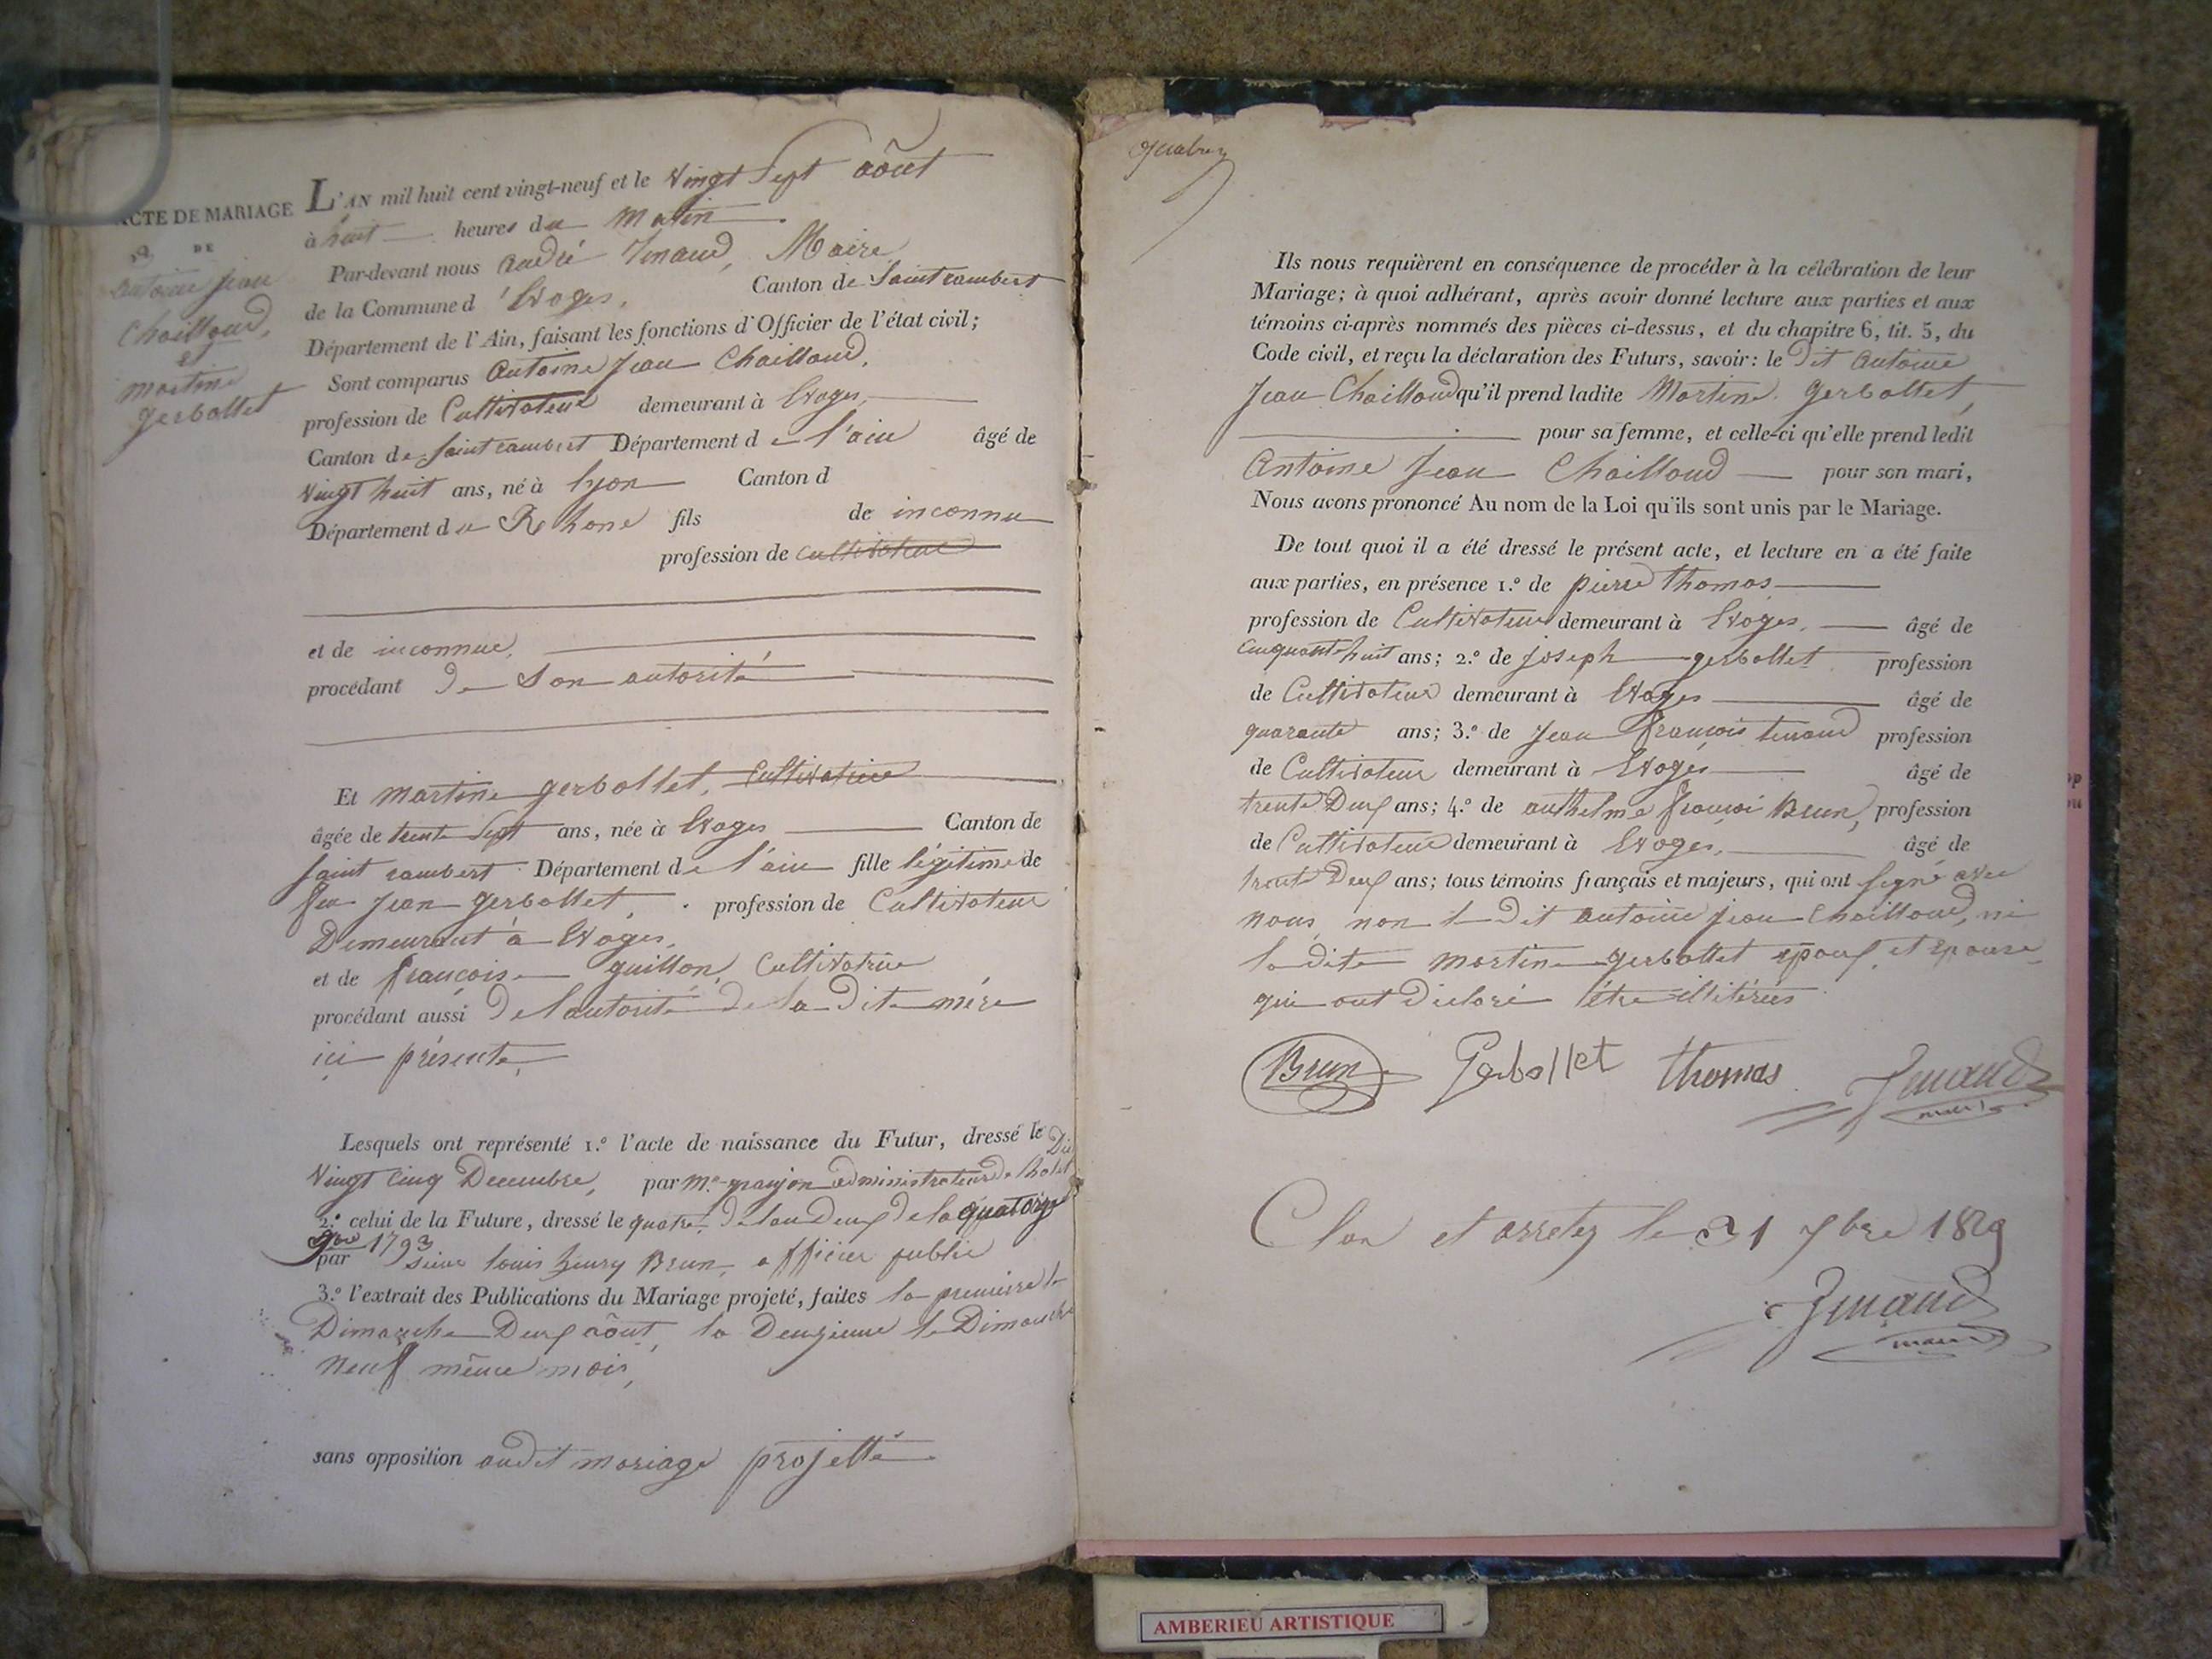 ACTE DE MARIAGE
DE
antoine jean
Chailloud,
et
martine
gerbollet
L'AN mil huit cent vingt-neuf et le vingt sept aôut
à huit heures du matin
Par-devant nous andré Imaud, Maire
de la Commune d'Evoges, Canton de Saint rambert
Département de l'Ain, faisant les fonctions d'Officier de l'état civil;
Sont comparus Antoine Jean Chailloud,
profession de Cultivateur demeurant à Evoges,
Canton de saint rambert Département de l'ain âgé de
vingt huit ans, né à lyon Canton d
Département du Rhone fils de inconnu
profession de cultivateur
et de inconnue,
procédant de son autorité
Et martine gerbollet, cultivatrice
âgée de trente sept ans, née à Evoges Canton de
saint rambert Département de l'ain fille légitime de
feu jean gerbollet, profession de Cultivateur
Demeurant à Evoges,
et de françoise guillon, Cultivatrice
procédant aussi de l'autorité de la dite mére
ici présente,
Lesquels ont représenté 1.º l'acte de naissance du Futur, dressé le
vingt cinq Decembre, par Mr. administrateur de
2.º celui de la Future, dressé le quatre de l'an deux de la quatorze
9bre 1793
par sieur louis henry Brun, officier public
3.º l'extrait des Publications du Mariage projeté, faites la premiere le
Dimanche Deux aôut, la Deuxieme le Dimanche
neuf même mois,
sans opposition audit mariage projetté
Ils nous requièrent en conséquence de procéder à la célébration de leur
Mariage; à quoi adhérant, après avoir donné lecture aux parties et aux
témoins ci-après nommés des pièces ci-dessus, et du chapitre 6, tit. 5, du
Code civil, et reçu la déclaration des Futurs, savoir: le dit Antoine
Jean Chailloud qu'il prend ladite Martine gerbollet,
pour sa femme, et celle-ci qu'elle prend ledit
Antoine Jean Chailloud pour son mari,
Nous avons prononcé Au nom de la Loi qu'ils sont unis par le Mariage.
De tout quoi il a été dressé le présent acte, et lecture en a été faite
aux parties, en présence 1.º de pierre thomas
profession de Cultivateur demeurant à Evoges, âgé de
cinquante huit ans; 2.º de joseph gerbollet profession
de Cultivateur demeurant à Evoges âgé de
quarante ans; 3.º de Jean françois profession
de Cultivateur demeurant à Evoges âgé de
trente Deux ans; 4.º de anthelme françoi Brun, profession
de Cultivateur demeurant à Evoges, âgé de
trente Deux ans; tous témoins français et majeurs, qui ont signé avec
nous, non le dit antoine jean chailloud, ni
la dite martine gerbollet epoux et epouse
qui ont declaré être illitérés
Brun Gerbollet thomas Imaud
maire
Clos et arretez le 31 Xbre 1829
Imaud
maire
AMBERIEU ARTISTIQUE